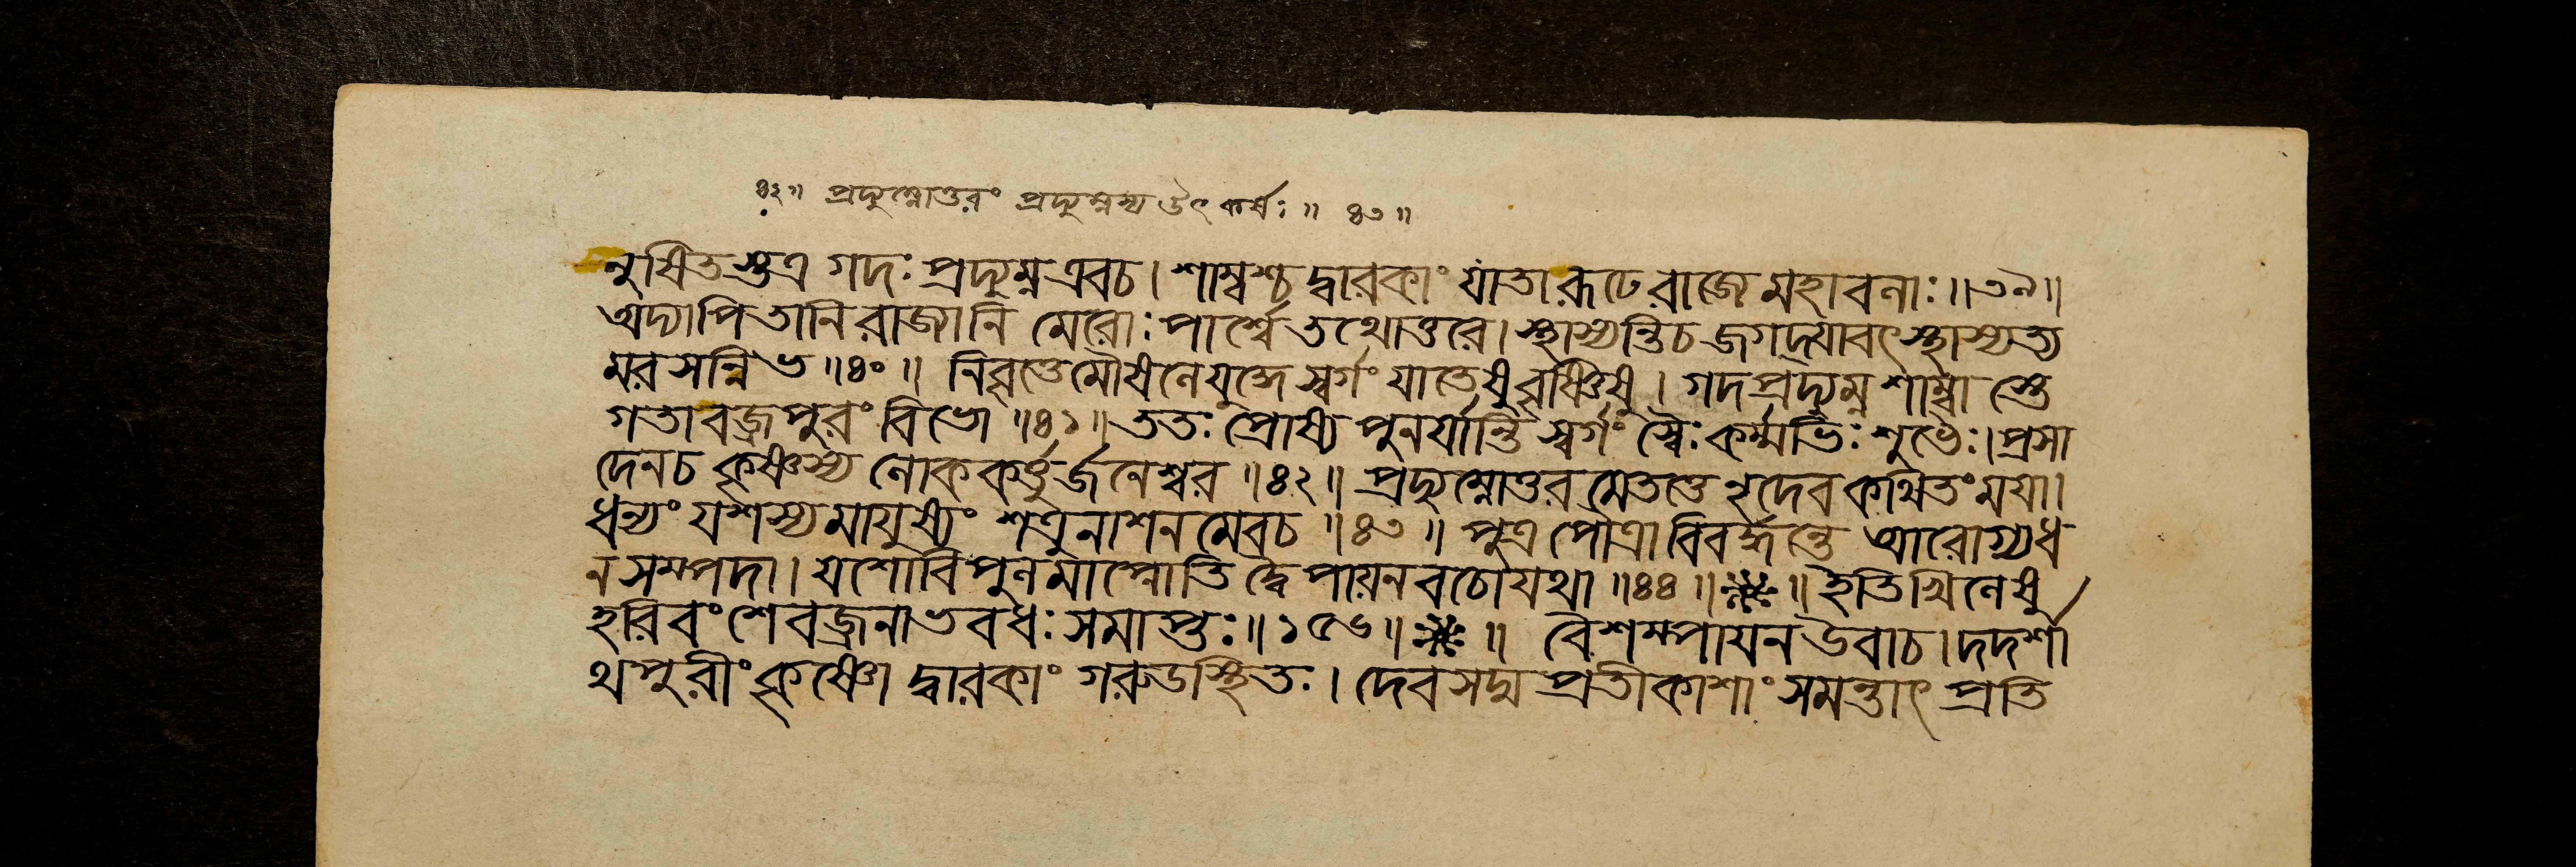 ৪২॥ প্রদ্যুম্নোত্তরং প্রদ্যুম্নস্য উৎকর্ষঃ॥ ৪৩॥
নুষিতস্তত্র গদঃ প্রদ্যুম্ন এবচ। শাম্বশ্চ দ্বারকাং যাতা রূঢে রাজ্যে মহাবলাঃ॥৩৯॥
অদ্যাপি তানি রাজ্যানি মেরোঃ পার্শ্বে তথোত্তরে। স্থাস্যন্তি চ জগদ্যাবৎ স্থাস্যত্য
মরসন্নিভ॥৪০॥ নিবৃত্তে মৌষলে যুদ্ধে স্বর্গং যাতেষু বৃষ্ণিষু। গদপ্রদ্যুম্নশাম্বাস্তে
গতা বজ্রপুরং বিভো॥৪১॥ ততঃ প্রোষ্য পুনর্যান্তি স্বর্গং স্বৈঃ কর্ম্মভিঃ শুভৈঃ। প্রসা
দেন চ কৃষ্ণস্য লোককর্ত্তুর্জনেশ্বর॥৪২॥ প্রদ্যুম্নোত্তরমেতত্তে নৃদেব কথিতং ময়া।
ধন্যং যশস্যমায়ুষ্যং শত্রুনাশনমেবচ॥৪৩॥ পুত্রপৌত্রা বিবর্দ্ধন্তে আরোগ্যধ
নসম্পদা। যশো বিপুলমাপ্নোতি দ্বৈপায়নবচো যথা॥৪৪॥ ॥ ইতি খিলেষু
হরিবংশে বজ্রনাভবধঃ সমাপ্তঃ॥১৫৬॥ ॥ বৈশম্পায়ন উবাচ। দদর্শা
থ পুরীং কৃষ্ণো দ্বারকাং গরুডস্থিতঃ। দেবসদ্ম প্রতীকাশাং সমন্তাৎ প্রতি